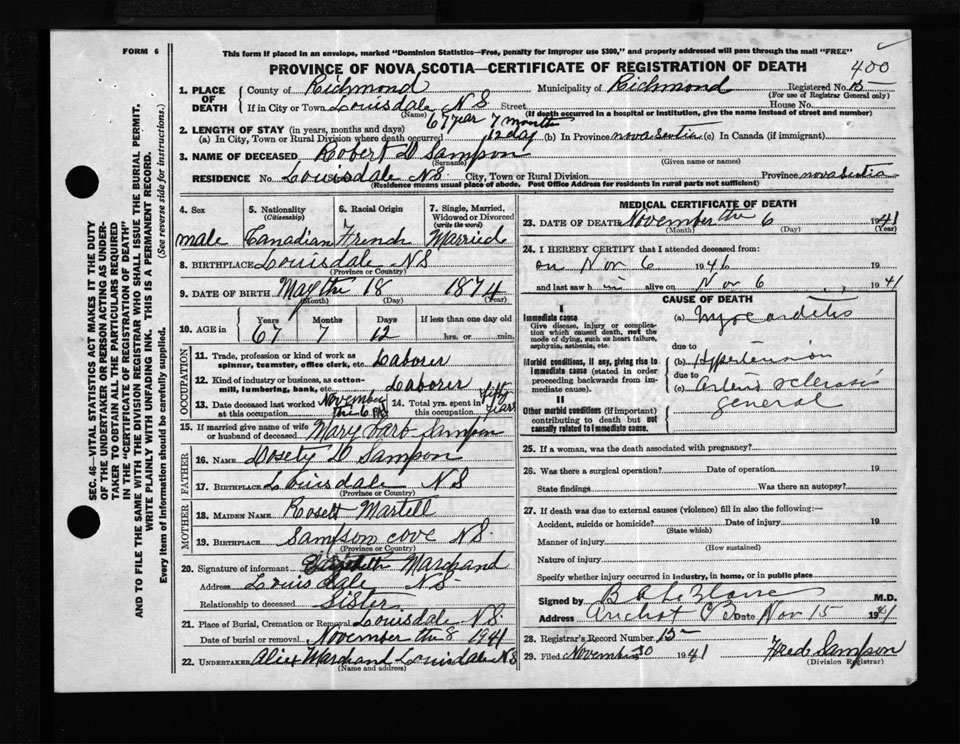 FORM 6
This form if placed in an envelope, marked "Dominion Statistics—Free, penalty for improper use $300," and properly addressed will pass through the mail "FREE"
PROVINCE OF NOVA SCOTIA—CERTIFICATE OF REGISTRATION OF DEATH
400
1. PLACE OF DEATH County of Richmond Municipality of Richmond Registered No. 15
(For use of Registrar General only)
If in City or Town Louisdale N S Street House No.
(Name) (If death occurred in a hospital or institution, give the name instead of street and number)
2. LENGTH OF STAY (in years, months and days) 67 year 7 months
(a) In City, Town or Rural Division where death occurred 12 day (b) In Province nova scotia (c) In Canada (if immigrant)
3. NAME OF DECEASED Robert D Sampson
(Surname) (Given name or names)
RESIDENCE No. Louisdale N S. City, Town or Rural Division Province nova scotia
(Residence means usual place of abode. Post Office Address for residents in rural parts not sufficient)
4. Sex male
5. Nationality (Citizenship) Canadian
6. Racial Origin French
7. Single, Married, Widowed or Divorced (write the word) Married
8. BIRTHPLACE Louisdale N S
(Province or Country)
9. DATE OF BIRTH May the 18 1874
(Month) (Day) (Year)
10. AGE in Years Months Days If less than one day old
67 7 12 hrs. or min.
OCCUPATION
11. Trade, profession or kind of work as spinner, teamster, office clerk, etc. Laborer
12. Kind of industry or business, as cotton-mill, lumbering, bank, etc. Laborer
13. Date deceased last worked at this occupation November the 6
14. Total yrs. spent in this occupation fifty years
15. If married give name of wife or husband of deceased Mary Sampson
FATHER
16. NAME D Sampson
17. BIRTHPLACE Louisdale N S
(Province or Country)
MOTHER
18. MAIDEN NAME Rosett Martell
19. BIRTHPLACE Sampson cove N S.
(Province or Country)
20. Signature of informant Elizabeth Marchand
Address Louisdale N S
Relationship to deceased Sister
21. Place of Burial, Cremation or Removal Louisdale N S.
Date of burial or removal November the 8 1941
22. UNDERTAKER Marchand Louisdale N S
(Name and address)
MEDICAL CERTIFICATE OF DEATH
23. DATE OF DEATH November the 6 1941
(Month) (Day) (Year)
24. I HEREBY CERTIFY that I attended deceased from:
on Nov 6 1941 19
and last saw h im alive on Nov 6 1941
CAUSE OF DEATH
I
Immediate cause
Give disease, injury or complication which caused death, not the mode of dying, such as heart failure, asphyxia, asthenia, etc.
(a) Myocarditis
due to
Morbid conditions, if any, giving rise to immediate cause (stated in order proceeding backwards from immediate cause).
(b) Hypertension
due to
(c) Arterio sclerosis
general
II
Other morbid conditions (if important) contributing to death but not causally related to immediate cause.
25. If a woman, was the death associated with pregnancy?
26. Was there a surgical operation? Date of operation 19
State findings Was there an autopsy?
27. If death was due to external causes (violence) fill in also the following:—
Accident, suicide or homicide? Date of injury 19
(State which)
Manner of injury
(How sustained)
Nature of injury
Specify whether injury occurred in industry, in home, or in public place
Signed by B A LeBlanc M.D.
Address Arichat C B Date Nov 15 1941
28. Registrar's Record Number 15
29. Filed November 30 1941 Fred Sampson
(Division Registrar)
SEC. 46—VITAL STATISTICS ACT MAKES IT THE DUTY
OF THE UNDERTAKER OR PERSON ACTING AS UNDER-
TAKER TO OBTAIN ALL THE PARTICULARS REQUIRED
IN THE "CERTIFICATE OF REGISTRATION OF DEATH"
AND TO FILE THE SAME WITH THE DIVISION REGISTRAR WHO SHALL ISSUE THE BURIAL PERMIT.
WRITE PLAINLY WITH UNFADING INK. THIS IS A PERMANENT RECORD.
Every item of information should be carefully supplied. (See reverse side for instructions.)